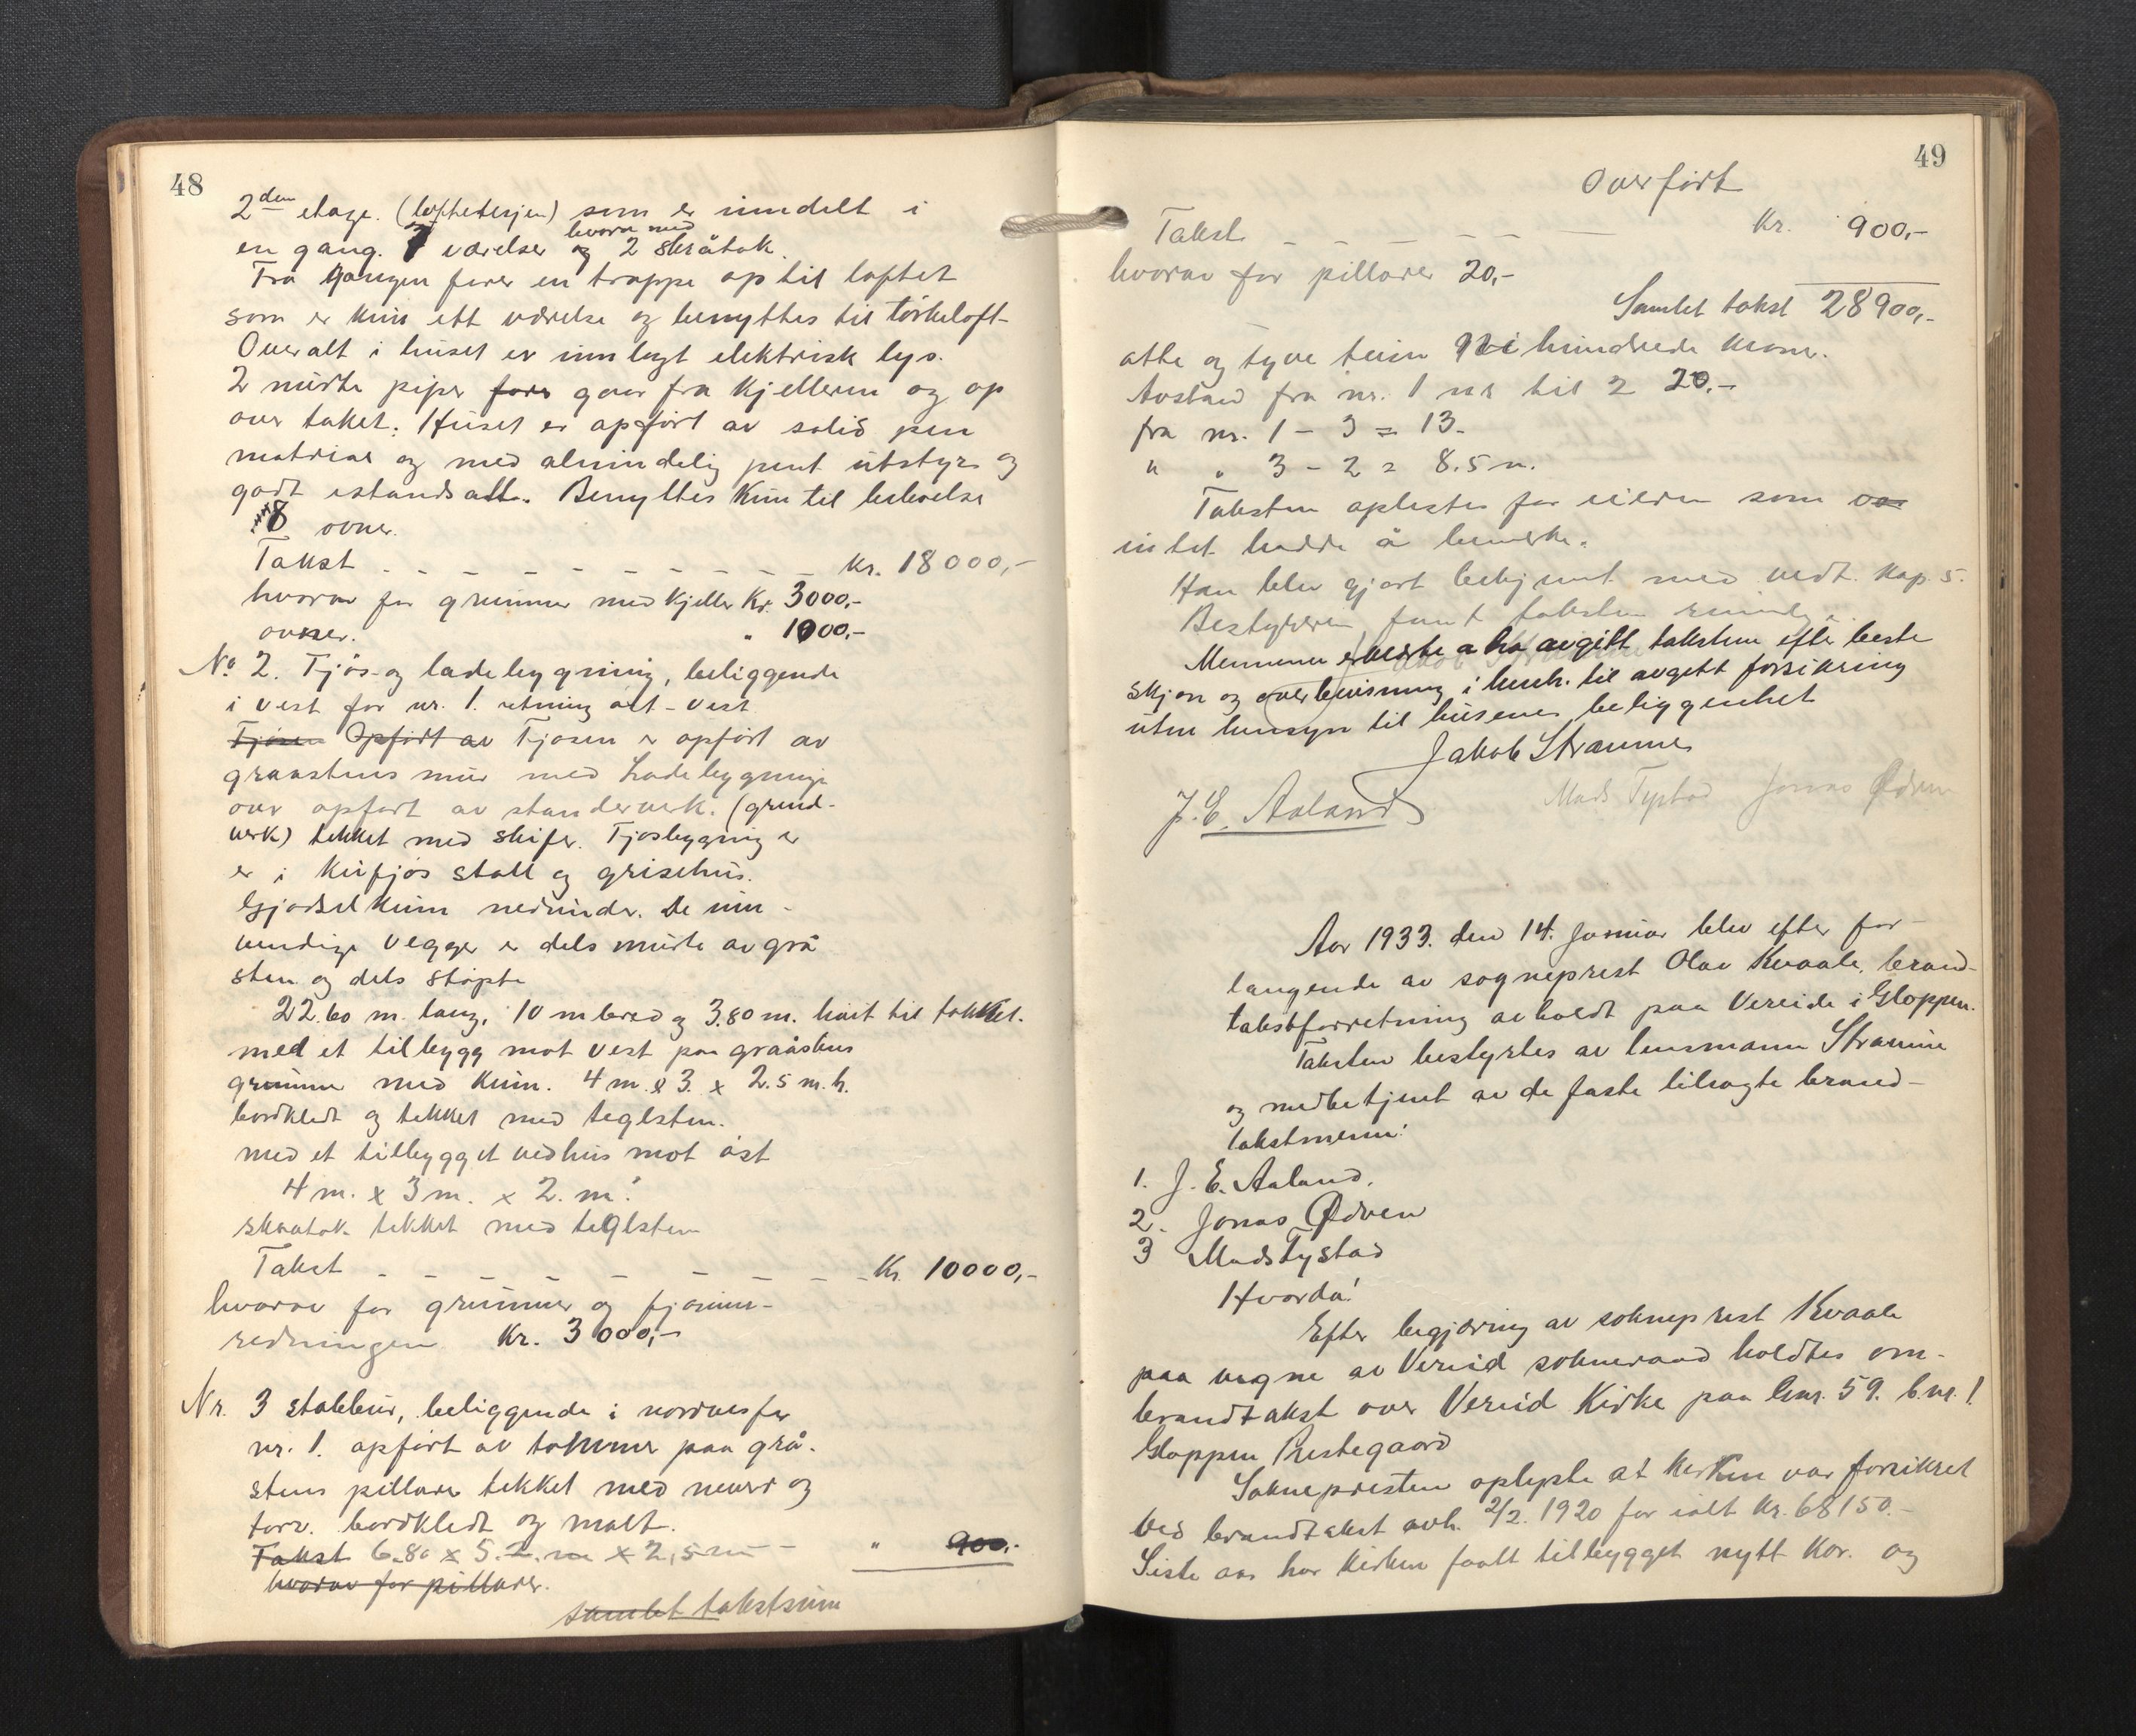 48
2den etage. (loftetesjen) som er inndelt i
en gang. 7 værelser og hvorav med 2 skråtak.
Fra gangen fører en trappe op til loftet
som er kun ett værelse og benyttes til törkeloft-
Overalt i huset er innlagt elektrisk lys.
2 murte piper fores gaar fra kjelleren og op
over taket. Huset er opført av solid pen
matrial og med almindelig pent utstyr og
godt istandsatt. Benyttes kun til beboelse
8 ovner.
Takst - - - - - - - - - - Kr. 18000,-
hvorav for grunnmur med kjeller Kr. 3000,-
ovner. " 1000,-
No 2. Fjös- og ladebygning, beliggende
i vest for nr. 1. retning öst - vest
Fjösen Opfört av Fjosen er opfört av
graastens mur med Ladebygninge
over opført av standerverk. (grind-
verk) tekket med skifer. Fjosbygning er
er i kufjös stall og grisehus.
Gjødselkum nedunder. De inn-
vendige vegger er dels murte av grå
sten og dels stöpte
22.60 m. lang, 10 m bred og 3.80 m. höit til takket.
med et tilbygg mot vest paa graastens
grunnmur med kum. 4 m. x 3. x 2.5 m. h.
bordkledt og tekket med teglsten.
med et tilbygget vedhus mot öst
4 m. x 3 m. x 2. m.
skraatak tekket med teglsten
Takst - - - - - - - - - - Kr. 10000,-
hvorav for grunnmur og fjösinn-
redningen Kr. 3000,-
Nr. 3 stabbur, beliggende i nordvest for
nr. 1. opført av tömmer paa grå-
stens pillarer tekket med never og
torv. bordkledt og malt.
Takst 6.80 x 5.2. m x 2,5 m - " 900,-
hvorav for pillarer.
samlet takstsum
49
Overført
Takst - - - - - - Kr. 900,-
hvorav for pillarer 20,-
Samlet takst 28900,-
otte og tyve tusen Ni hundrede kroner.
Avstand fra nr. 1 til 2 20.-
fra nr. 1 - 3 = 13.-
" " 3 - 2 = 8.5 m.
Taksten oplestes for eieren som var
intet hadde å bemerke.
Han blev gjort bekjennt med vedt. kap 5.
Bestyreren fant taksten rimelig.
Mennene erklærte a ha avgitt taksten efter beste
skjøn og overbevisning i henh. til avgitt forsikring
uten hensyn til husenes beliggenhet
Jakob Straume
J. E. Aaland Mads Tystad Jonas Ødven
Aar 1933. den 14. Januar blev efter for-
langende av sogneprest Olav Kvaale, brand-
takstforretning avholdt paa Vereide i Gloppen.
Taksten bestyrtes av lensmann Straume
og medbetjent av de faste tilsagte brand-
takstmenn:
1. J. E. Aaland.
2. Jonas Ødven
3 Mads Tystad
Hvorda!
Efter begjæring av sokneprest Kvaale
paa vegne av Vereid sokneraad holdtes om-
brandtakst over Vereid Kirke paa Gnr. 59. b.nr. 1
Gloppen Prestegaard
Soknepresten oplyste at kirken var forsikret
ved brandtakst avh. 2/2. 1920 for ialt kr. 68150.-
Siste aar har kirken faatt tilbygget nytt kor. og